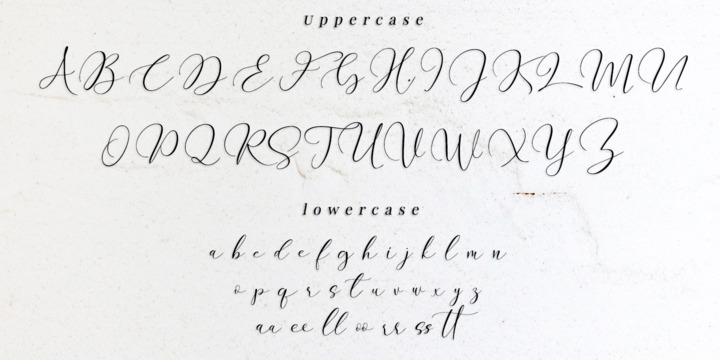 Uppercase
A B C D E F G H I J K L M N
O P Q R S T U V W X Y Z
lowercase
a b c d e f g h i j k l m n
o p q r s t u v w x y z
aa ee ll oo rr ss tt